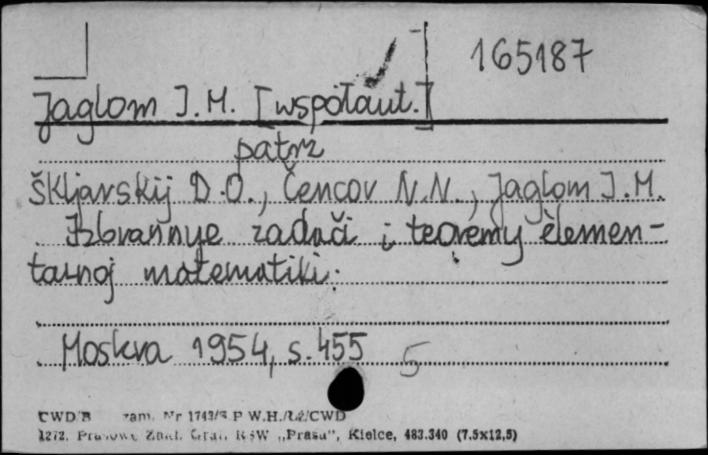 165187
Jaglom J. M. [współaut.]
patrz
Škljarskij D.O., Čencov N.N., Jaglom J.M.
Izbrannye zadači i teoremy èlemen-
tarnoj matematiki.
Moskva 1954, s. 455 5
CWD/B zam. Nr 1743/S P W.H./Łż/CWD
1272. Prasowe Zakł. Graf. RSW „Prasa", Kielce, 483.340 (7.5x12,5)